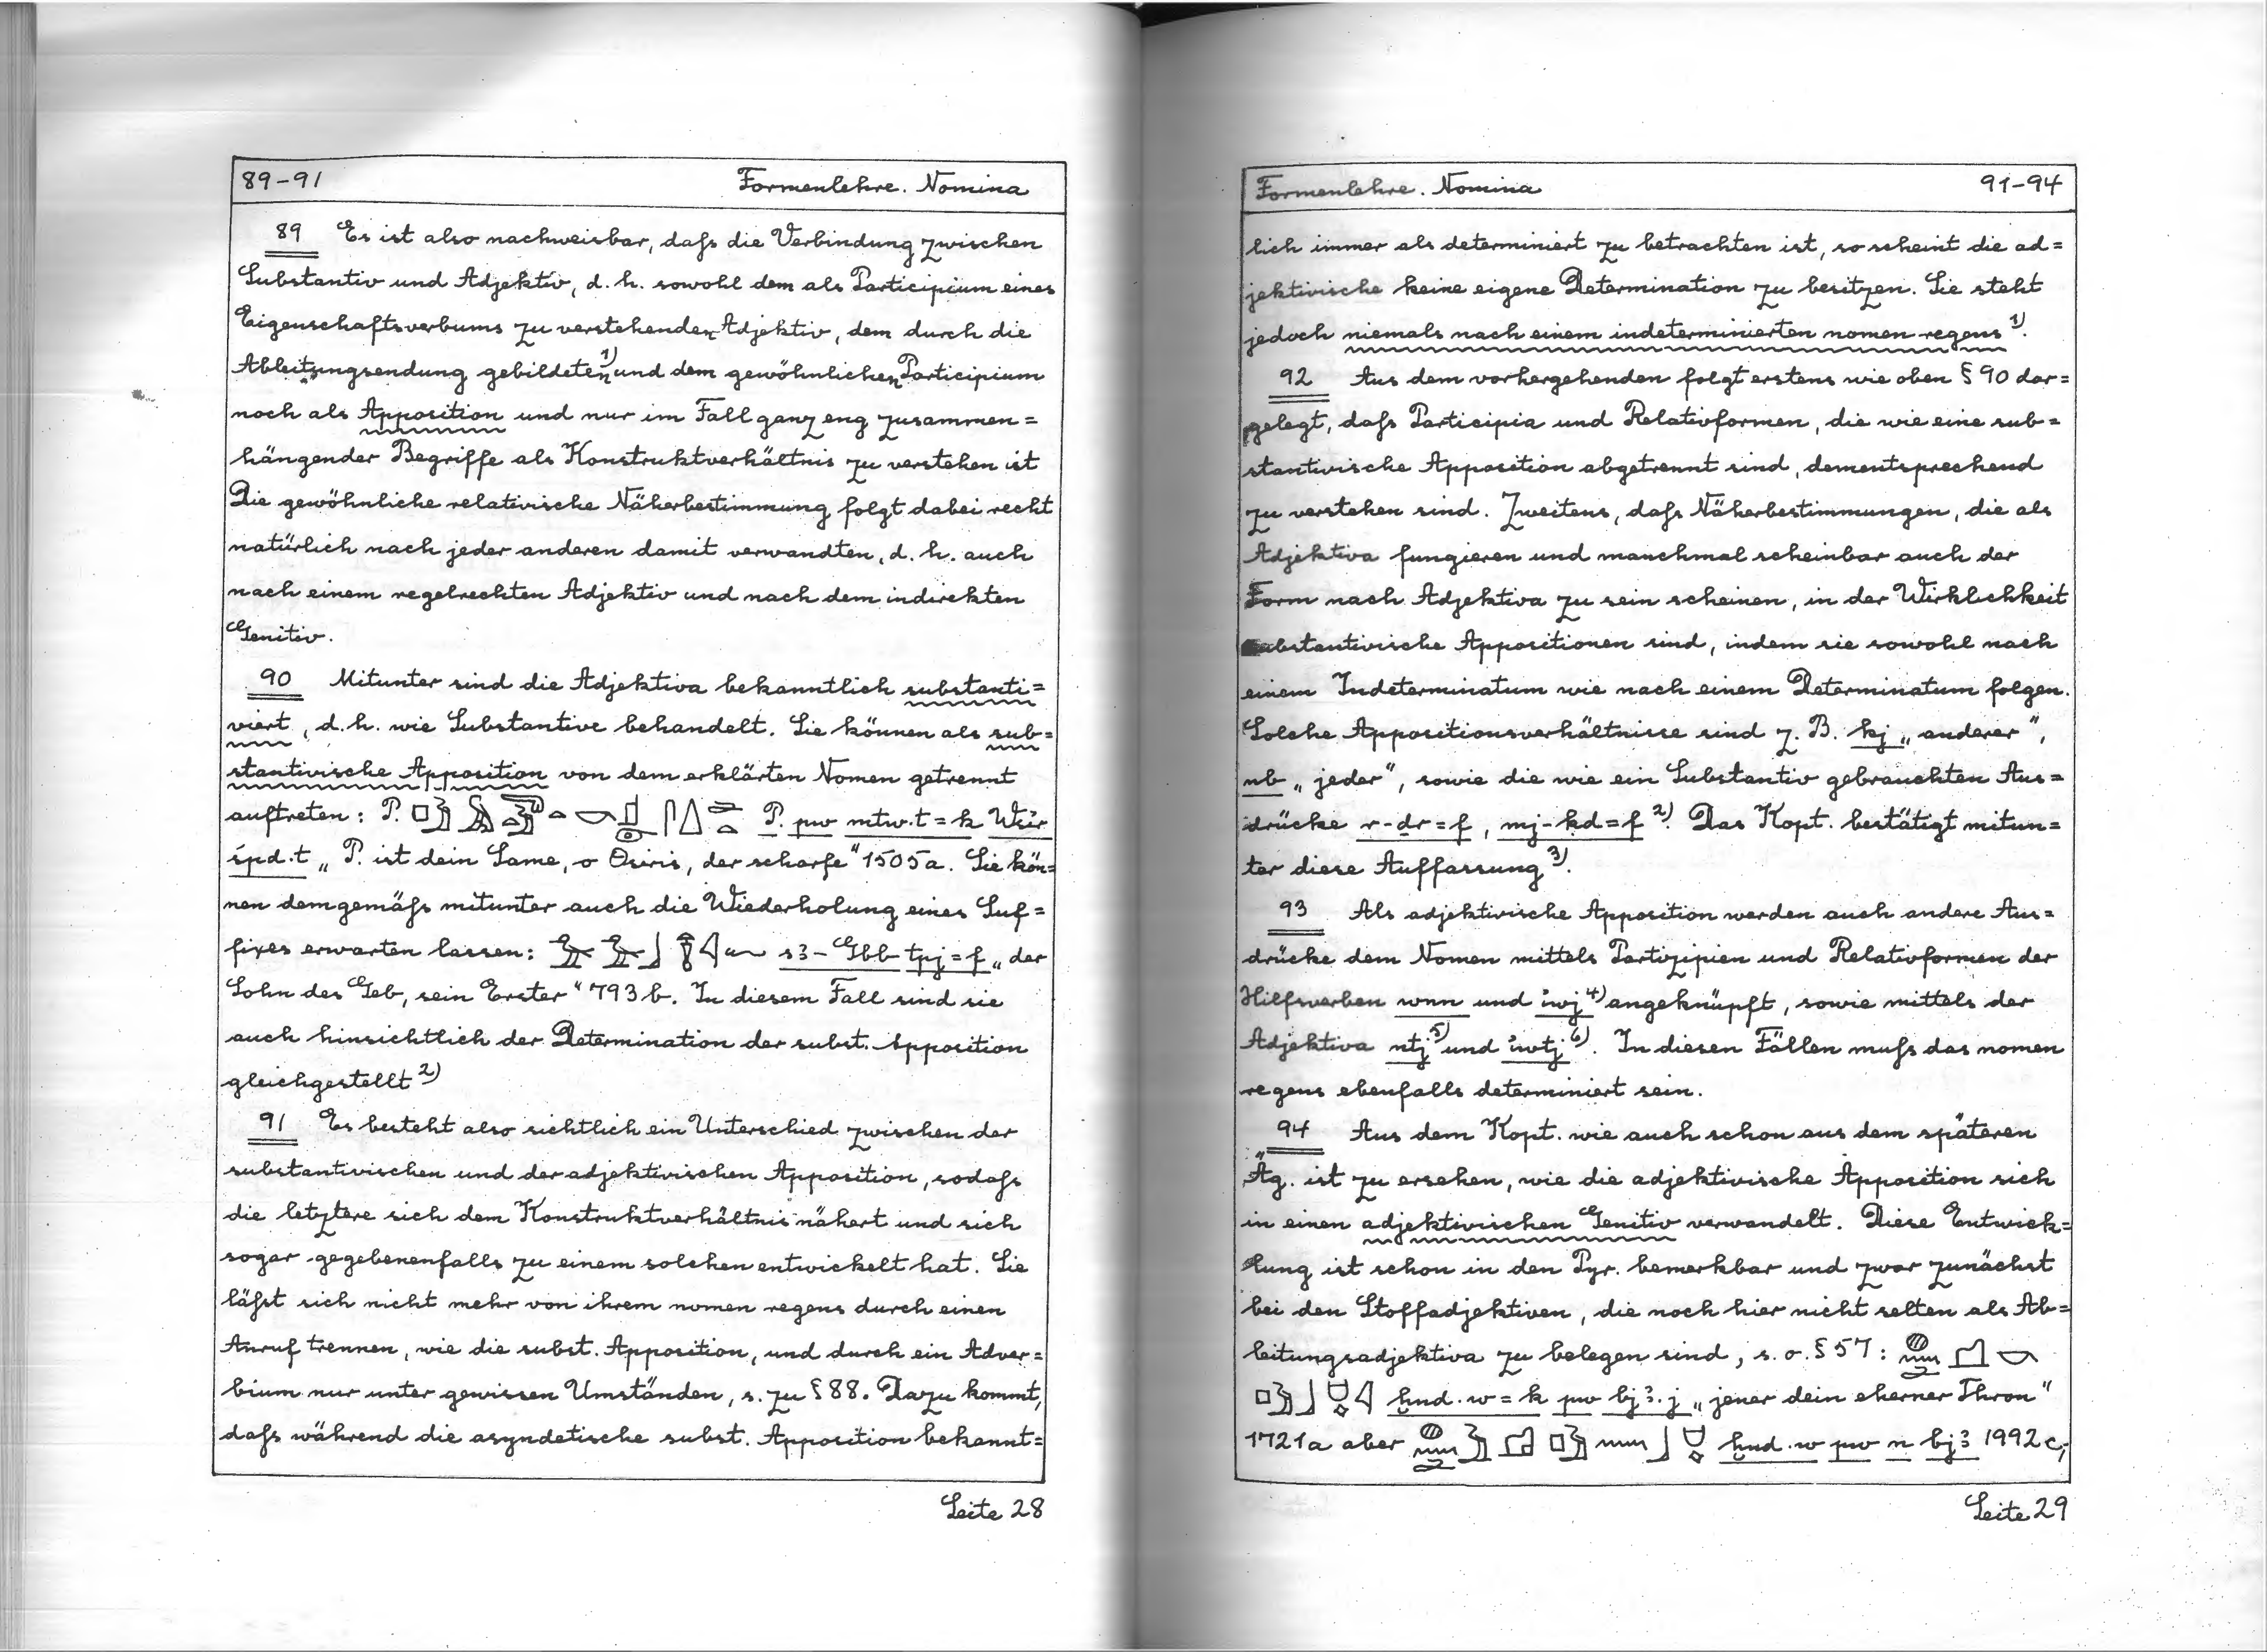 89-91 Formenlehre. Nomina
89 Es ist also nachweisbar, daſs die Verbindung zwischen
Substantiv und Adjektiv, d. h. sowohl dem als Participium eines
Eigenschaftsverbums zu verstehenden Adjektiv, dem durch die
Ableitungsendung gebildeten¹⁾ und dem gewöhnlichen Participium
noch als Apposition und nur im Fall ganz eng zusammen=
hängender Begriffe als Konstruktverhältnis zu verstehen ist
Die gewöhnliche relativische Näherbestimmung folgt dabei recht
natürlich nach jeder anderen damit verwandten, d. h. auch
nach einem regelrechten Adjektiv und nach dem indirekten
Genitiv.
90 Mitunter sind die Adjektiva bekanntlich substanti=
viert, d. h. wie Substantive behandelt. Sie können als sub=
stantivische Apposition von dem erklärten Nomen getrennt
auftreten: P. P. pw mtw.t=k Wśir
śpd.t „P. ist dein Same, o Osiris, der scharfe“ 1505a. Sie kön=
nen demgemäſs mitunter auch die Wiederholung eines Suf=
fixes erwarten lassen: s3-Gbb tpj=f „der
Sohn des Geb, sein Erster“ 793b. In diesem Fall sind sie
auch hinsichtlich der Determination der subst. Apposition
gleichgestellt²⁾
91 Es besteht also sichtlich ein Unterschied zwischen der
substantivischen und der adjektivischen Apposition, sodaſs
die letztere sich dem Konstruktverhältnis nähert und sich
sogar gegebenenfalls zu einem solchen entwickelt hat. Sie
läſst sich nicht mehr von ihrem nomen regens durch einen
Anruf trennen, wie die subst. Apposition, und durch ein Adver=
bium nur unter gewissen Umständen, s. zu § 88. Dazu kommt,
daſs während die asyndetische subst. Apposition bekannt=
Seite 28
Formenlehre. Nomina 91-94
lich immer als determiniert zu betrachten ist, so scheint die ad=
jektivische keine eigene Determination zu besitzen. Sie steht
jedoch niemals nach einem indeterminierten nomen regens¹⁾.
92 Aus dem vorhergehenden folgt erstens wie oben § 90 dar=
gelegt, daſs Participia und Relativformen, die wie eine sub=
stantivische Apposition abgetrennt sind, dementsprechend
zu verstehen sind. Zweitens, daſs Näherbestimmungen, die als
Adjektiva fungieren und manchmal scheinbar auch der
Form nach Adjektiva zu sein scheinen, in der Wirklichkeit
substantivische Appositionen sind, indem sie sowohl nach
einem Indeterminatum wie nach einem Determinatum folgen.
Solche Appositionsverhältnisse sind z. B. kj „anderer“,
nb „jeder“, sowie die wie ein Substantiv gebrauchten Aus=
drücke r-dr=f, mj-ḳd=f²⁾. Das Kopt. bestätigt mitun=
ter diese Auffassung³⁾.
93 Als adjektivische Apposition werden auch andere Aus=
drücke dem Nomen mittels Partizipien und Relativformen der
Hilfsverben wnn und iwj⁴⁾ angeknüpft, sowie mittels der
Adjektiva ntj⁵⁾ und iwtj⁶⁾. In diesen Fällen muſs das nomen
regens ebenfalls determiniert sein.
94 Aus dem Kopt. wie auch schon aus dem späteren
Äg. ist zu ersehen, wie die adjektivische Apposition sich
in einen adjektivischen Genitiv verwandelt. Diese Entwick=
lung ist schon in den Pyr. bemerkbar und zwar zunächst
bei den Stoffadjektiven, die noch hier nicht selten als Ab=
leitungsadjektiva zu belegen sind, s. o. § 57:
ḫnd.w=k pw bj3.j „jener dein eherner Thron“
1721a aber ḫnd.w pw n bj3 1992c;
Seite 29